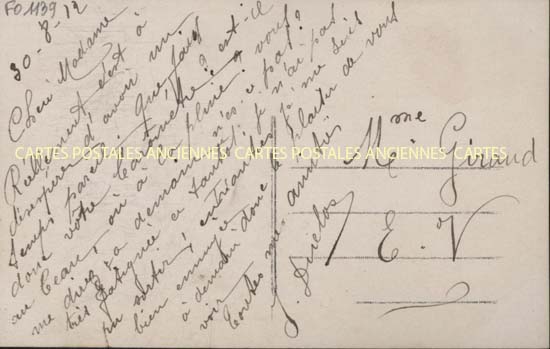 FO1139
30-8-12
Chère Madame
Réellement c'est à
désespérer d'avoir un
temps pareil. que fait
donc votre baromètre? est-il
au beau, ou à la pluie? vous
me direz ça demain n'est-ce pas?
très fatiguée et tantôt je n'ai pas
pu sortir, je me suis
bien ennuyée
à demain donc le plaisir de vous
voir
toutes mes amitiés
J. Direlos
Mme Giraud
E. V
CARTES POSTALES ANCIENNES CARTES POSTALES ANCIENNES CARTES